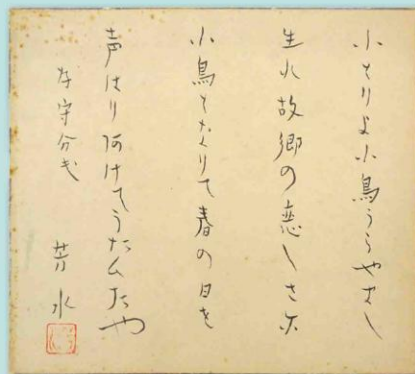 小とりよ小鳥うらやまし
生れ故郷の恋しさに
小鳥となりて春の日を
声はり阿けてうたひたや
芳水